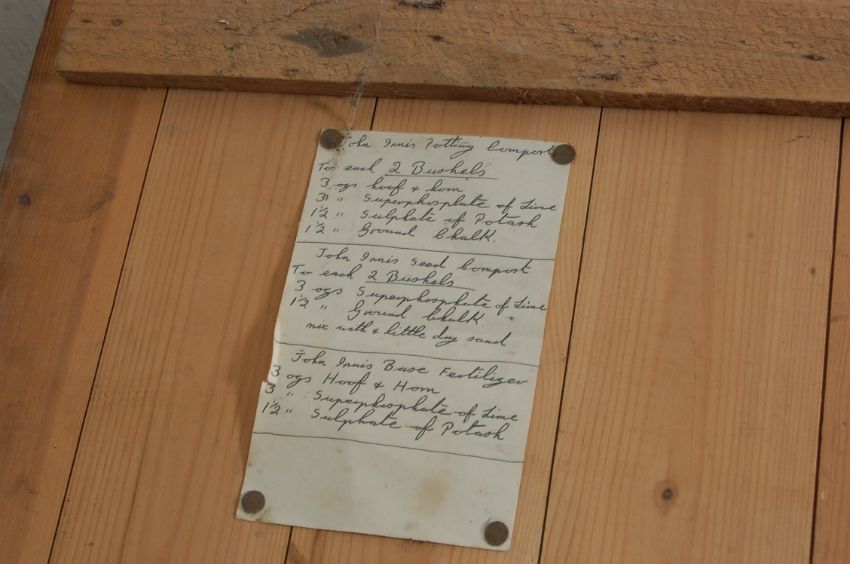 John Innis Potting Compost
To each 2 Bushels
3 ogs hoof & horn
3 " Superphosphate of Lime
1½ " Sulphate of Potash
1½ " Ground Chalk.
John Innis Seed Compost
To each 2 Bushels
3 ogs Superphosphate of Lime
1½ " Ground Chalk
mix with a little dry sand
John Innis Base Fertilizer
3 ogs Hoof & Horn
3 " Superphosphate of Lime
1½ " Sulphate of Potash